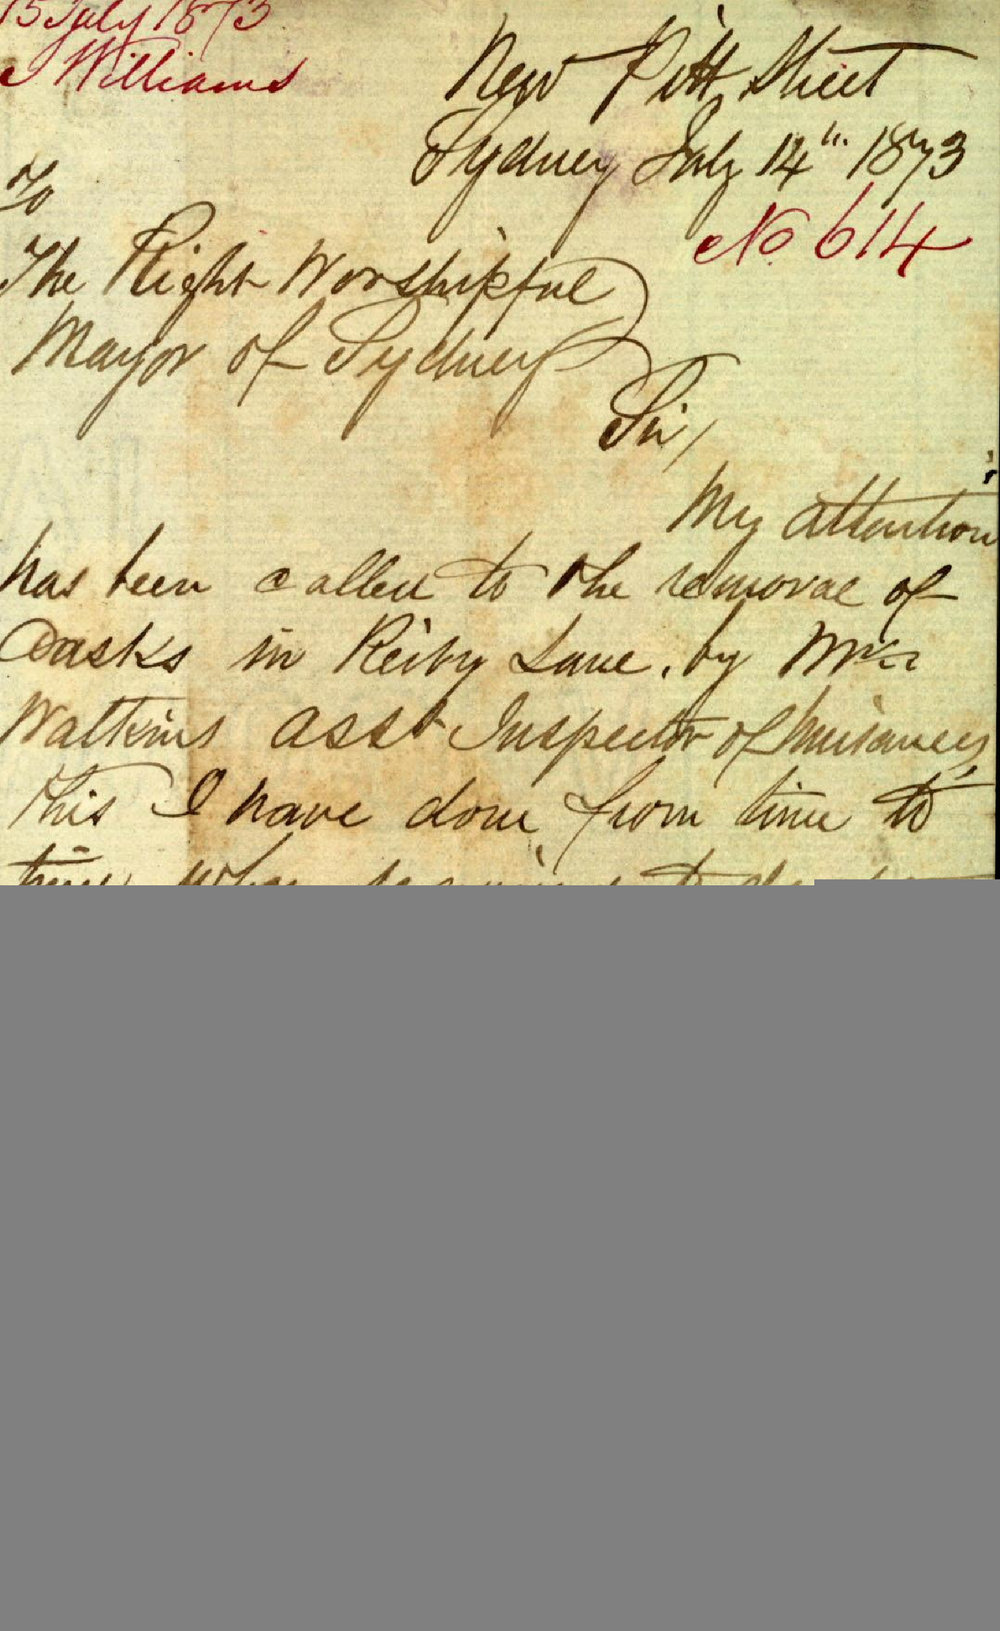 15 July 1873
Williams
New Pitt Street
Sydney July 14th 1873
No. 614
To
The Right Worshipful
Mayor of Sydney
Sir,
My attention
has been called to the removal of
Casks in Reiby Lane, by Mr
Watkins Asst Inspector of Nuisances,
this I have done from time to
time when